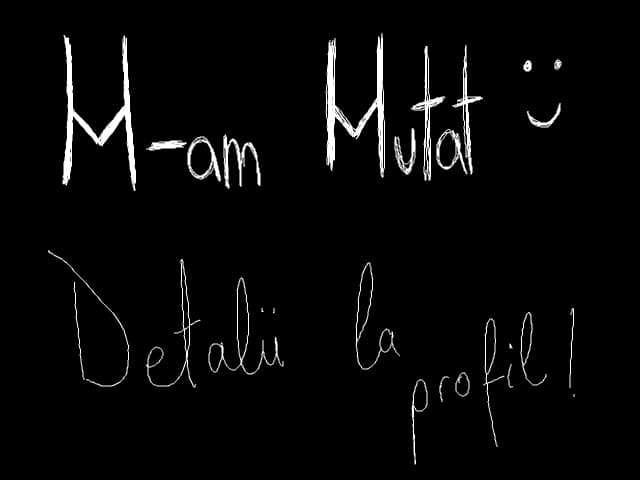 M-am Mutat :)
Detalii la profil!